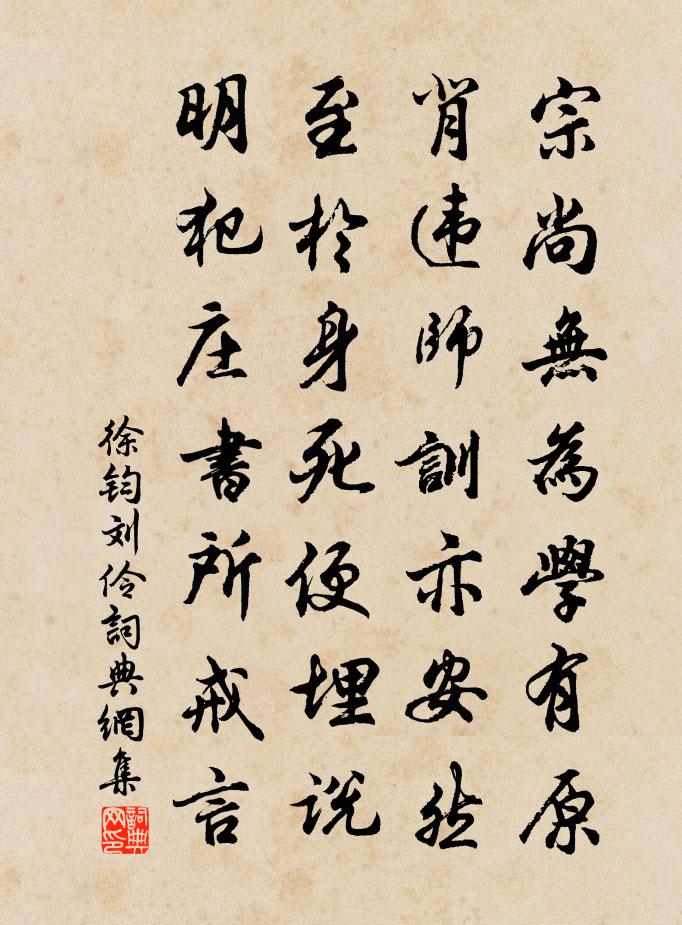 宗尚無為學有原
肖违師訓亦安然
至於身死便埋説
明犯庄書所戒言
徐鈞刘伶詞典網集
詞典网印